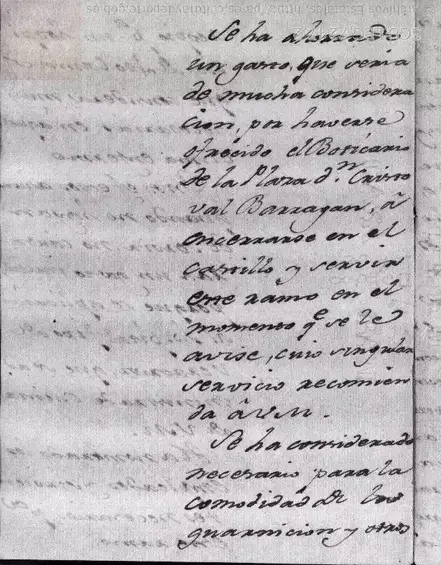 Se ha ahorrado
un gasto, que seria
de mucha considera
cion, por haverse
ofrecido el Boticario
de la Plaza d.n Cristo
val Barragan, â
encerrarse en el
Castillo y servir
este ramo en el
momento q.e se le
avise, cuio singular
servicio recomien
da â V.M.
Se ha considerado
necesario para la
comodidad de la
guarnicion y otros